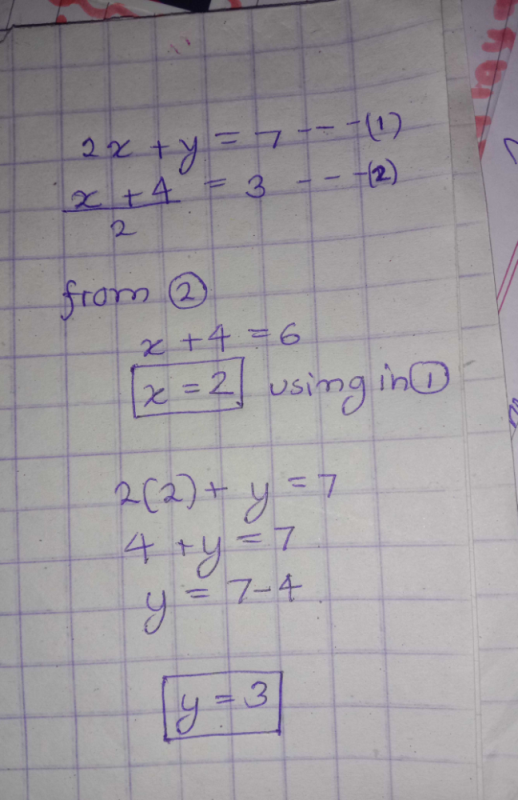 2x + y = 7 --- (1)
x + 4 = 3 --- (2)
2
from ②
x + 4 = 6
x = 2 using in ①
2(2) + y = 7
4 + y = 7
y = 7 - 4
y = 3